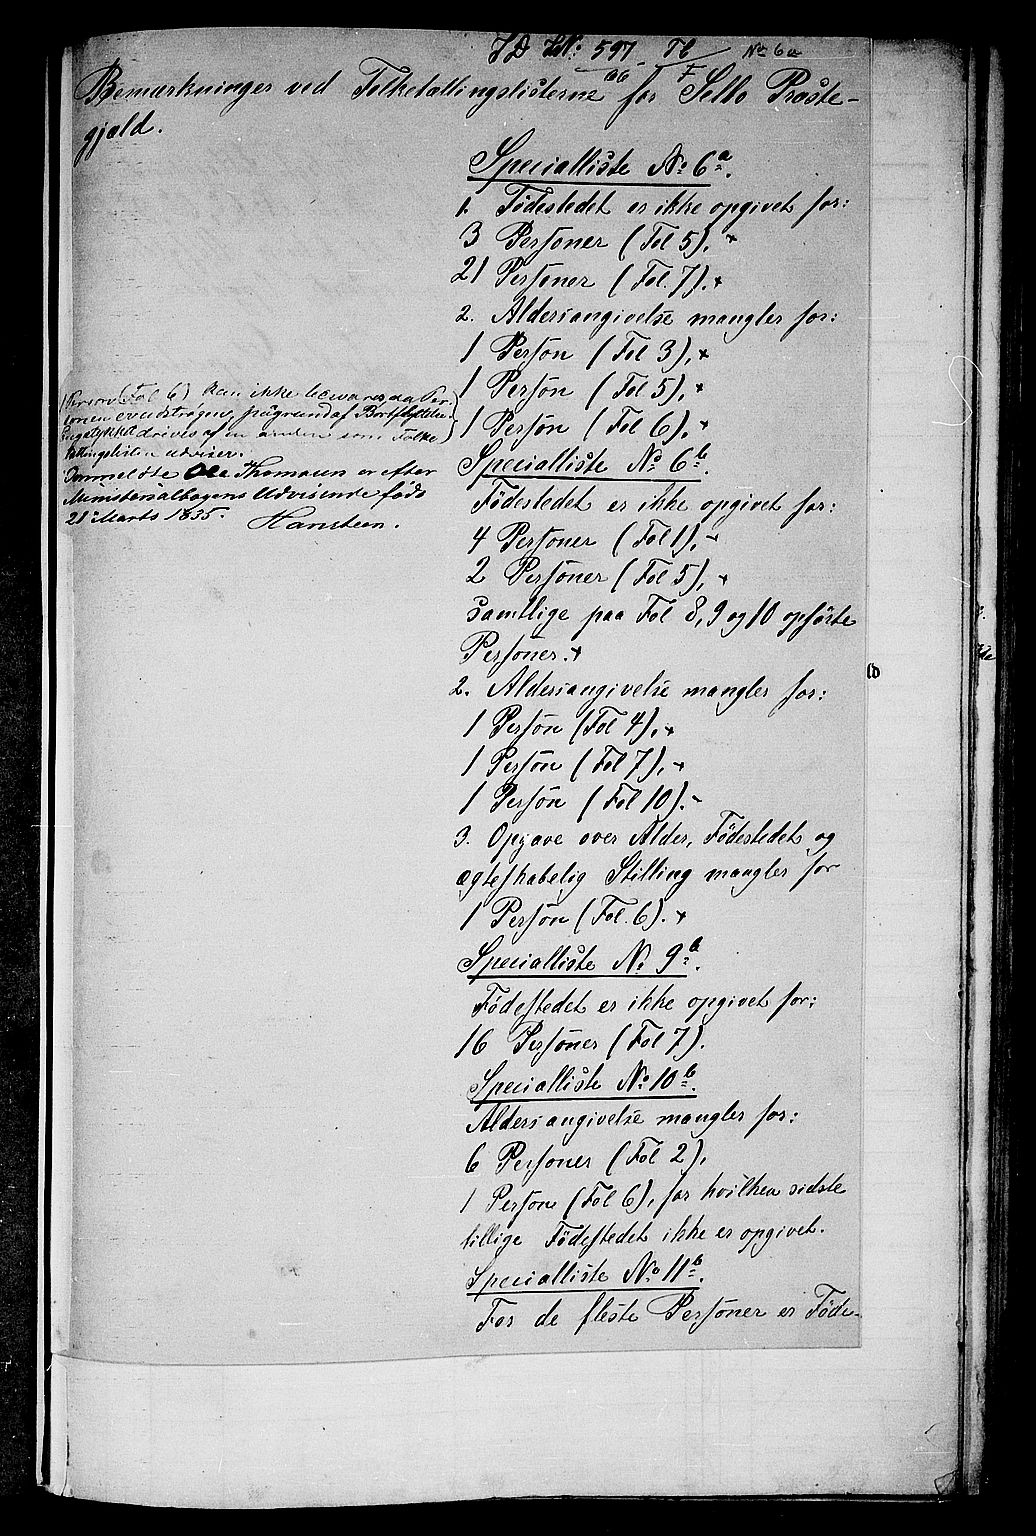 JD No: 597 Tb No 6a
66 F
Bemærkninger ved Folketællingslisterne for Selbo Præste-
gjæld.
Specialliste No. 6a.
1. Födestedet er ikke opgivet for:
3 Personer (Fol 5),
21 Personer (Fol. 7).
2. Aldersangivelse mangler for:
1 Person (Fol 3),
1 Person (Fol 5),
1 Person (Fol 6),
1 Person (Fol 6) kan ikke besvares, da Per-
sonen er udstrøgen, paagrund af Bortflytten.
drives af en anden som Folke
tællingslisten udviser.
Ole Thomasen er efter
Ministerialbogens Udvisende född
21de Marts 1835. Hansteen.
Specialliste No. 6b.
Födestedet er ikke opgivet for:
4 Personer (Fol 1),
2 Personer (Fol 5),
samtlige paa Fol 8, 9 og 10 opförte
Personer.
2. Aldersangivelse mangler for:
1 Person (Fol 4),
1 Person (Fol 7),
1 Person (Fol 10).
3. Opgave over Alder, Födestedet og
ægteskabelig Stilling mangler for
1 Person (Fol. 6).
Specialliste No. 9b.
Födestedet er ikke opgivet for:
16 Personer (Fol 7).
Specialliste No 10b.
Aldersangivelse mangler for:
6 Personer (Fol 2),
1 Person (Fol 6), for hvilken sidste
tillige Födestedet ikke er opgivet.
Specialliste No. 11b.
For de fleste Personer er Föde-